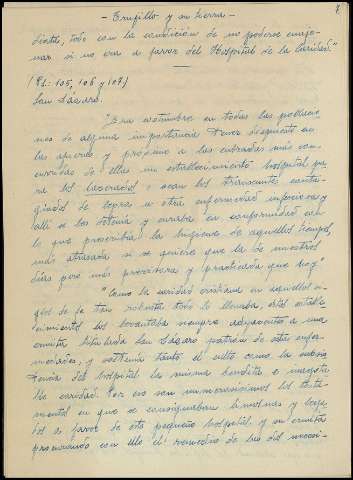 - Trujillo y su tierra -
dantes, todo con la condición de no poderse enaje-
nar si no era a favor del Hospital de la Caridad."
(Pl. 105, 106 y 107)
San Lázaro.
"Era costumbre en todas las poblacio-
nes de alguna importancia tener dispuesto en
las afueras y próximo a las entradas más con-
curridas de ellas un establecimiento hospital pa-
ra los lacerados, o sean los transeuntes conta-
giados de lepra u otra enfermedad infecciosa y
allí se los tenía y curaba en conformidad con
lo que prescribía la higiene de aquellos tiempos,
más atrasada si se quiere que la de nuestros
días pero más previsora y practicada que hoy"
"Como la caridad cristiana en aquellos si-
glos de fe tan robusta todo lo llenaba, estos estable-
cimientos los levantaba siempre adyacentes a una
ermita titulada San Lázaro patrón de estas enfer-
medades, y sostenía tanto el culto como la exis-
tencia del hospital la misma bendita e inagota-
ble caridad. Por eso son numerosísimos los testa-
mentos en que se consignaban limosnas y lega-
dos a favor de este pequeño hospital y su ermita
procurando con ello el remedio de los del vecin-